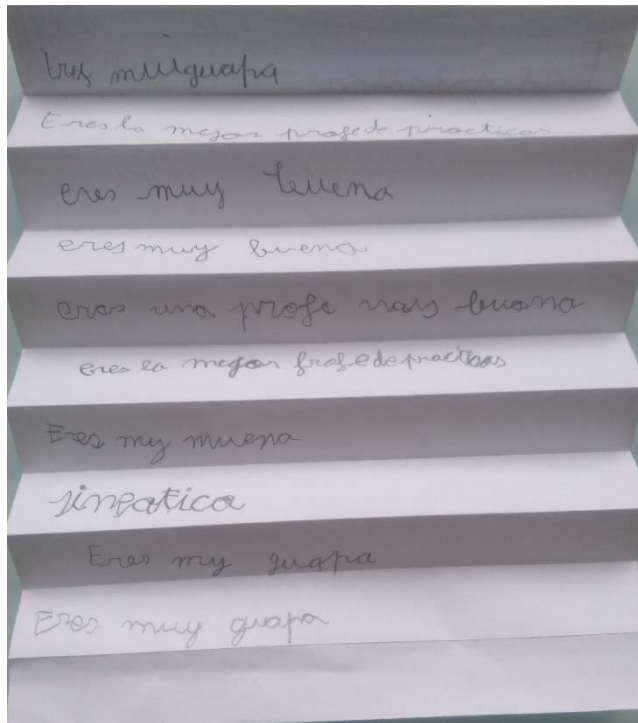 eres muiguapa
Eres la mejor profe de practicas
eres muy buena
eres muy buena
eres una profe mas buena
eres la mejor profe de practicas
Eres my muena
simpatica
Eres my guapa
Eres muy guapa